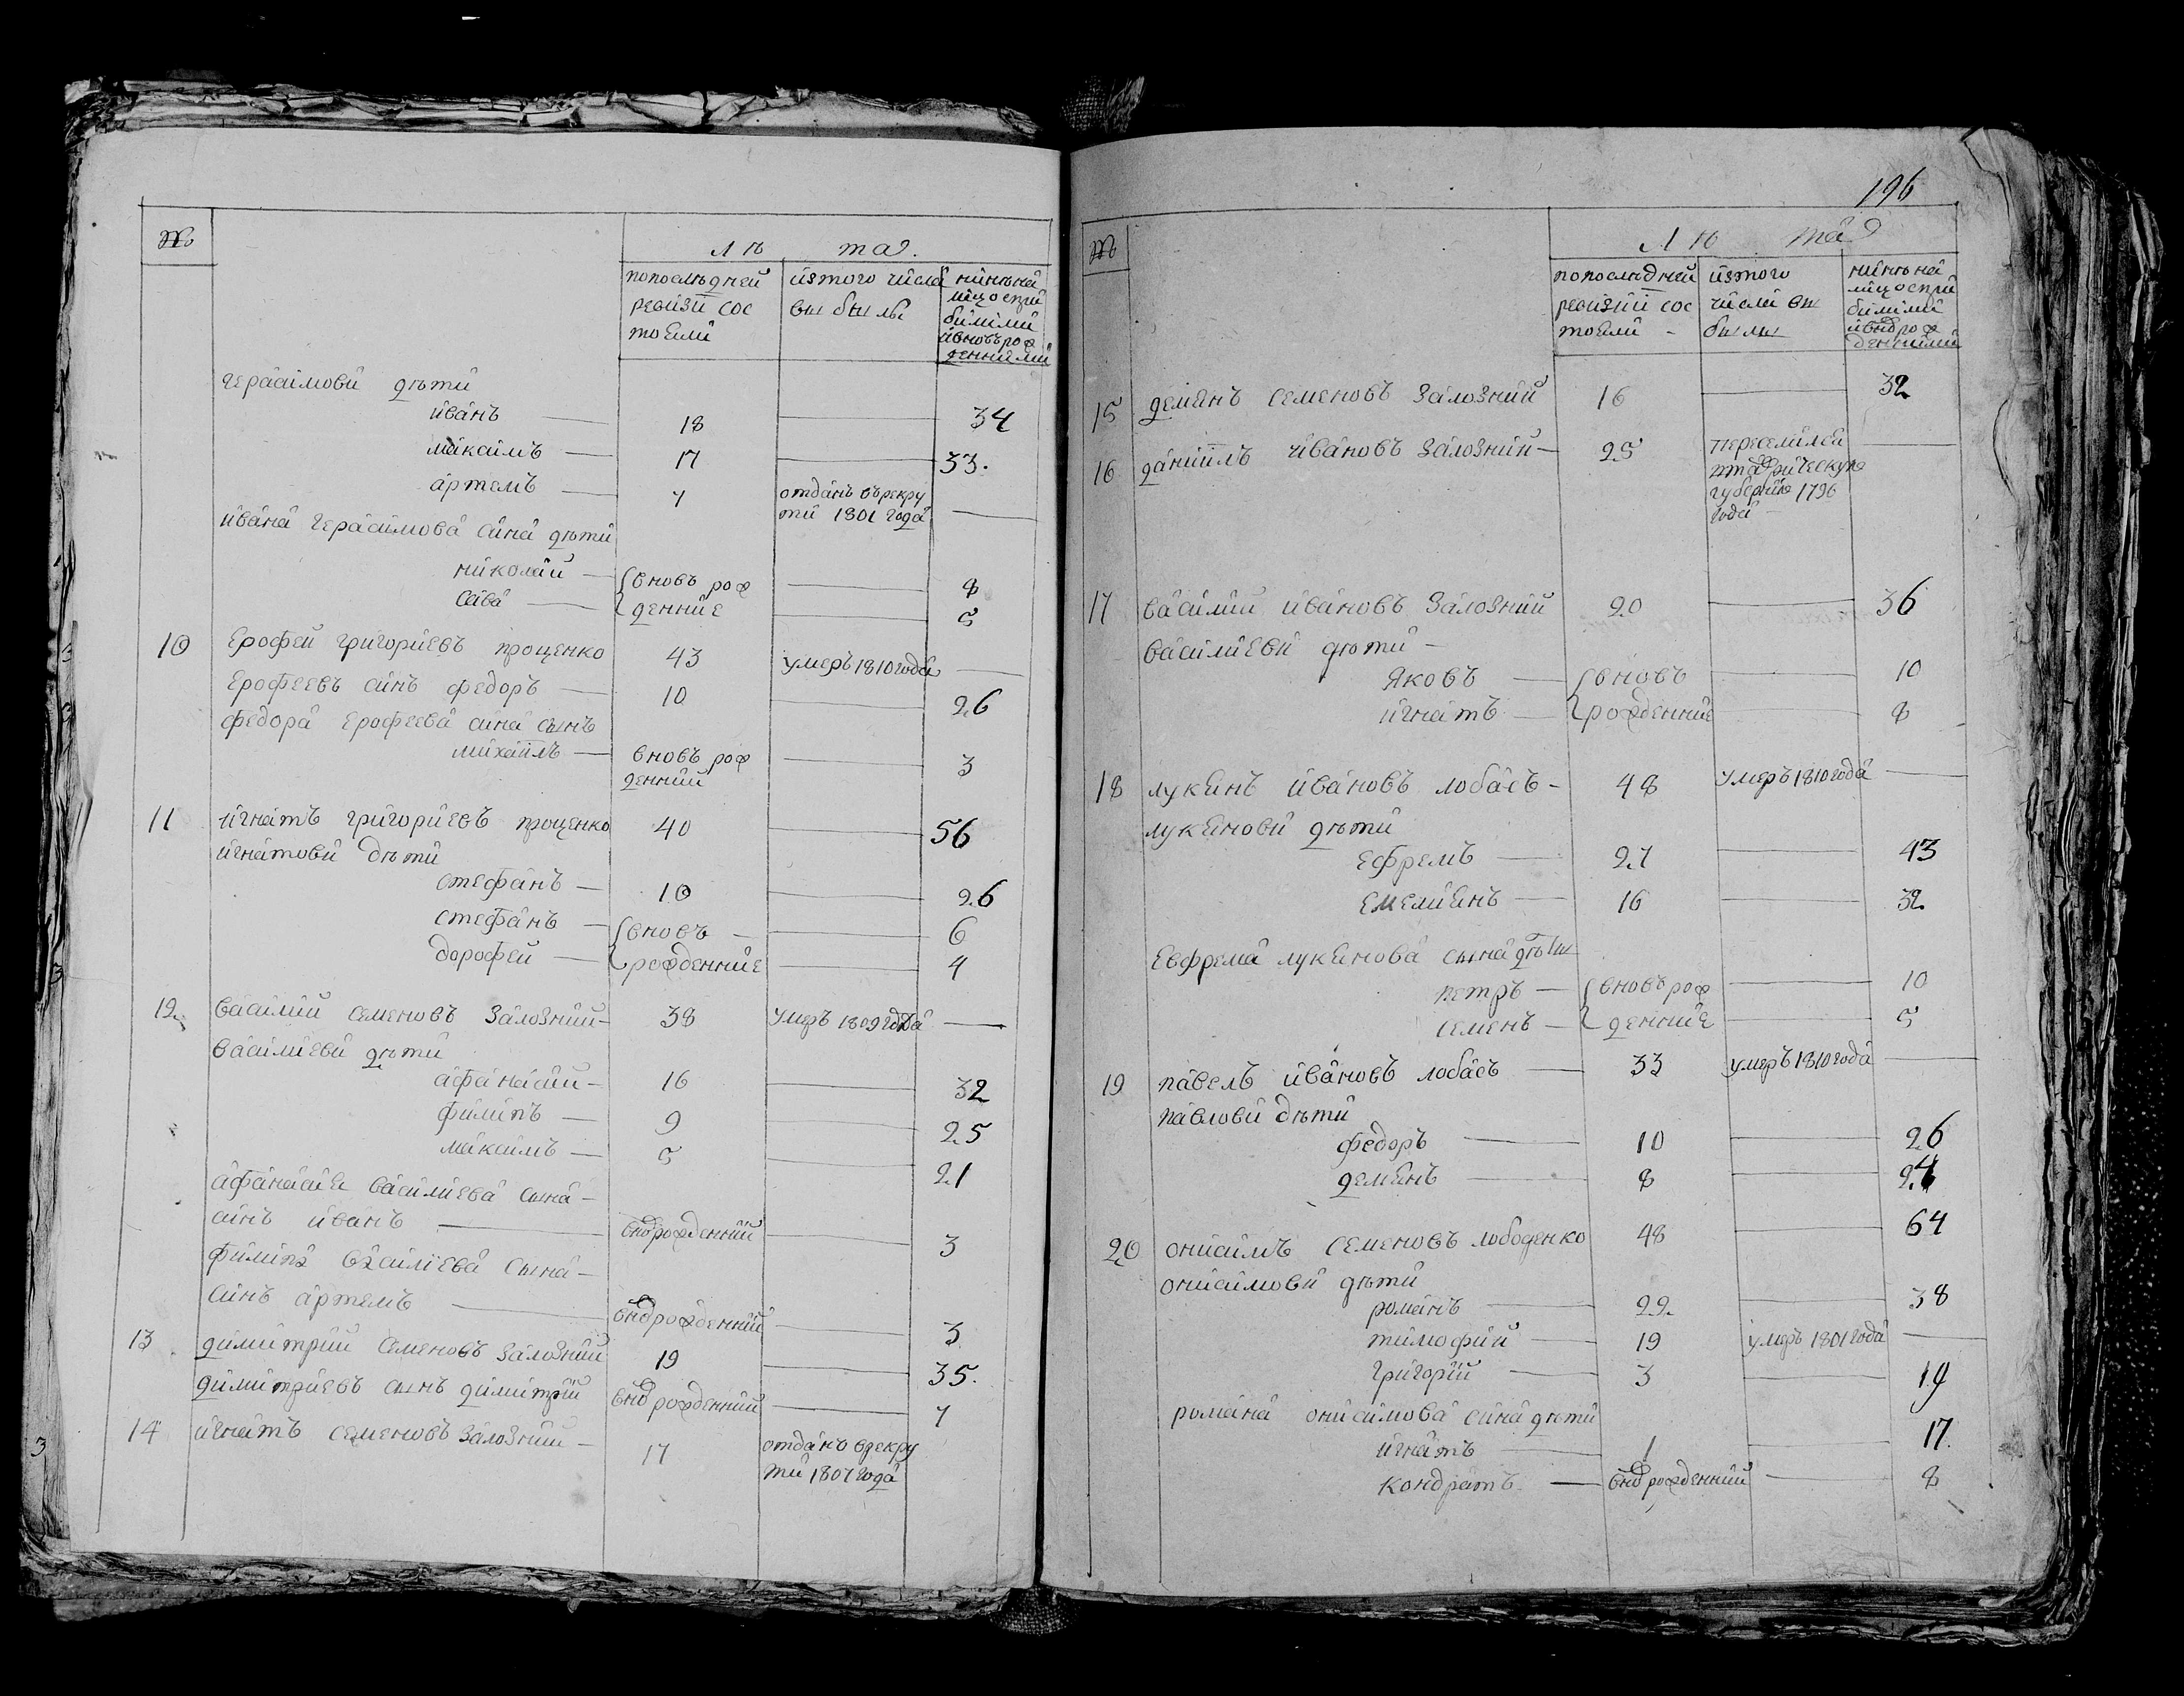 №
Лѣта.
попослѣдней ревизіи состоЯли
изтого числа выбыло
нинѣ на лицо сприбилими ивновърожденними
герасимови дѣти
иванъ — 18 — 34
максимъ — 17 — 33.
артемъ — 7 отданъ върекру
ти 1801 года —
ивана герасимова сина дѣти
николай — вновь рож — 8
сава — денние — 5
10 Ерофей григориевъ проценко 43 умеръ 1810 года —
Ерофеевъ синъ федоръ — 10 — 26
федора Ерофеева сина сынъ
михаилъ — вновъ рож — 3
денний
11 игнатъ григориевъ проценко 40 — 56
игнатови дѣти
стефанъ — 10 — 26
стефанъ — вновъ — 6
дорофей — рожденние — 4
12 василий семеновъ залозний — 38 умръ 1809 года —
василиеви дѣти
афанасий — 16 — 32
филипъ — 9 — 25
максимъ — 5 — 21
афанасиЯ василиева сына —
синъ иванъ — внорожденний — 3
филипа василіева сына —
синъ артемъ — внорожденний — 3
13 димитрий семеновъ залозний 19 — 35.
димитриевъ сынъ димитрий внорожденний — 7
14 игнатъ семеновъ залозний — 17 отданъ врекру
ти 1807 года
196
№
Лѣта
попослѣдней ревизіи состоЯли -
изтого числа выбылы
нинѣ на лицо сприбилими ивнорожденними
15 демЯнъ семеновъ залозний 16 — 32
16 даниилъ ивановъ залозний — 25 переселилсЯ —
втаврическую
губернию 1796
года —
17 василий ивановъ залозний 20 — 36
василиеви дѣти —
Яковъ — вновъ — 10
игнатъ — рожденние — 8
18 лукЯнъ ивановъ лобасъ - 48 умеръ 1810 года —
лукЯнови дѣти
Ефремъ — 27 — 43
ЕмелиЯнъ — 16 — 32
Евфрема лукЯнова сына дѣты
петръ — вновърож — 10
семенъ — денние — 5
19 павелъ ивановъ лобасъ — 33 умеръ 1810 года —
павлови дѣти
федоръ — 10 — 26
демЯнъ — 8 — 24
20 онисимъ семеновъ лободенко 48 — 64
онисимови дѣти
романъ — 22 — 38
тимофий — 19 умръ 1801 года —
григорій — 3 — 19
романа онисимова сина дѣти
игнатъ — 1 — 17.
кондратъ — внорожденний — 8